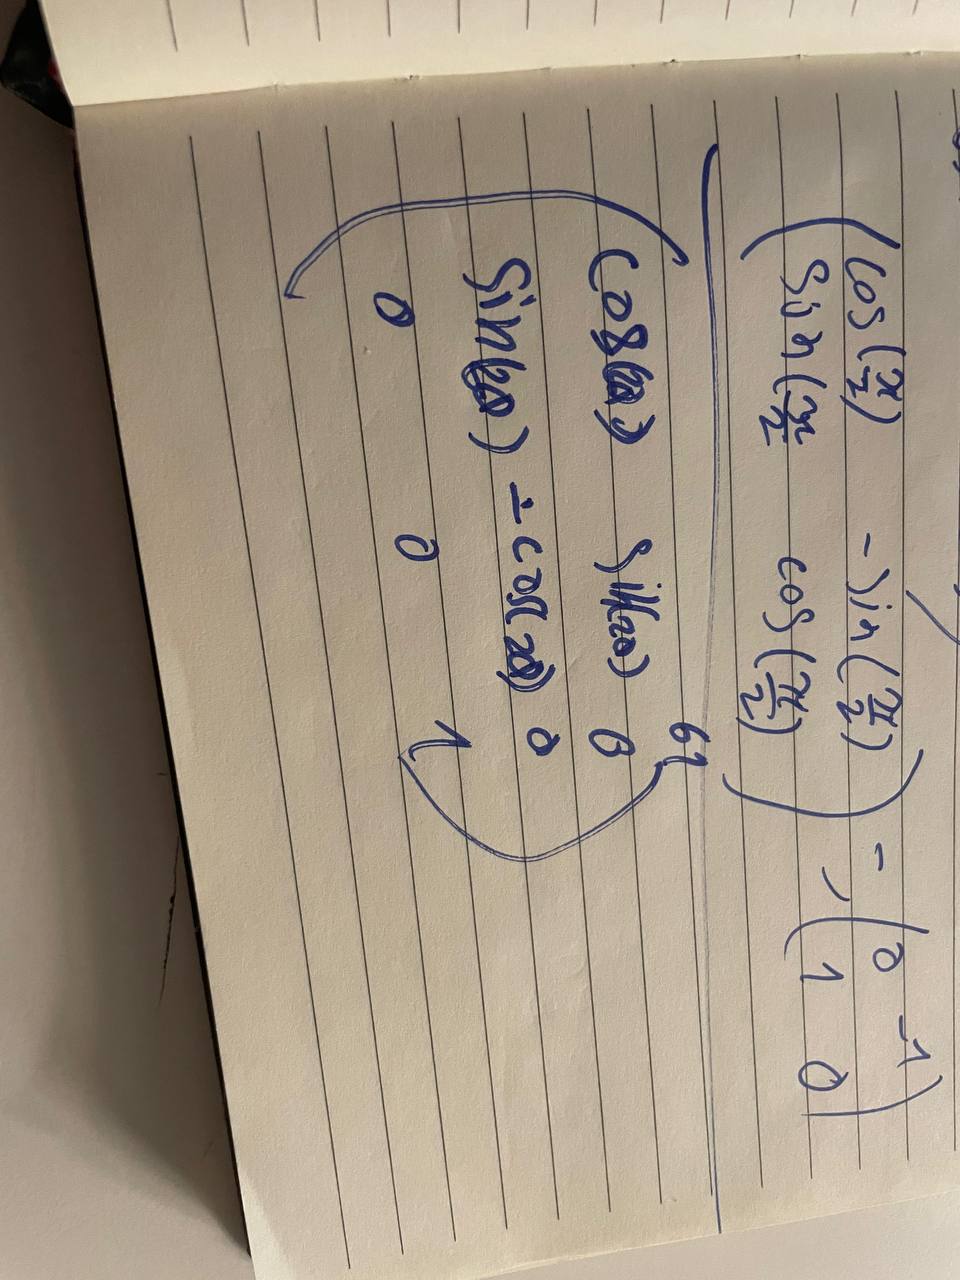 (cos(π/2) -sin(π/2)) = (0 -1)
(sin(π/2 cos(π/2)) , (1 0)
61
cos(2θ) sin(2θ) 0
sin(2θ) -cos(2θ) 0
0 0 1